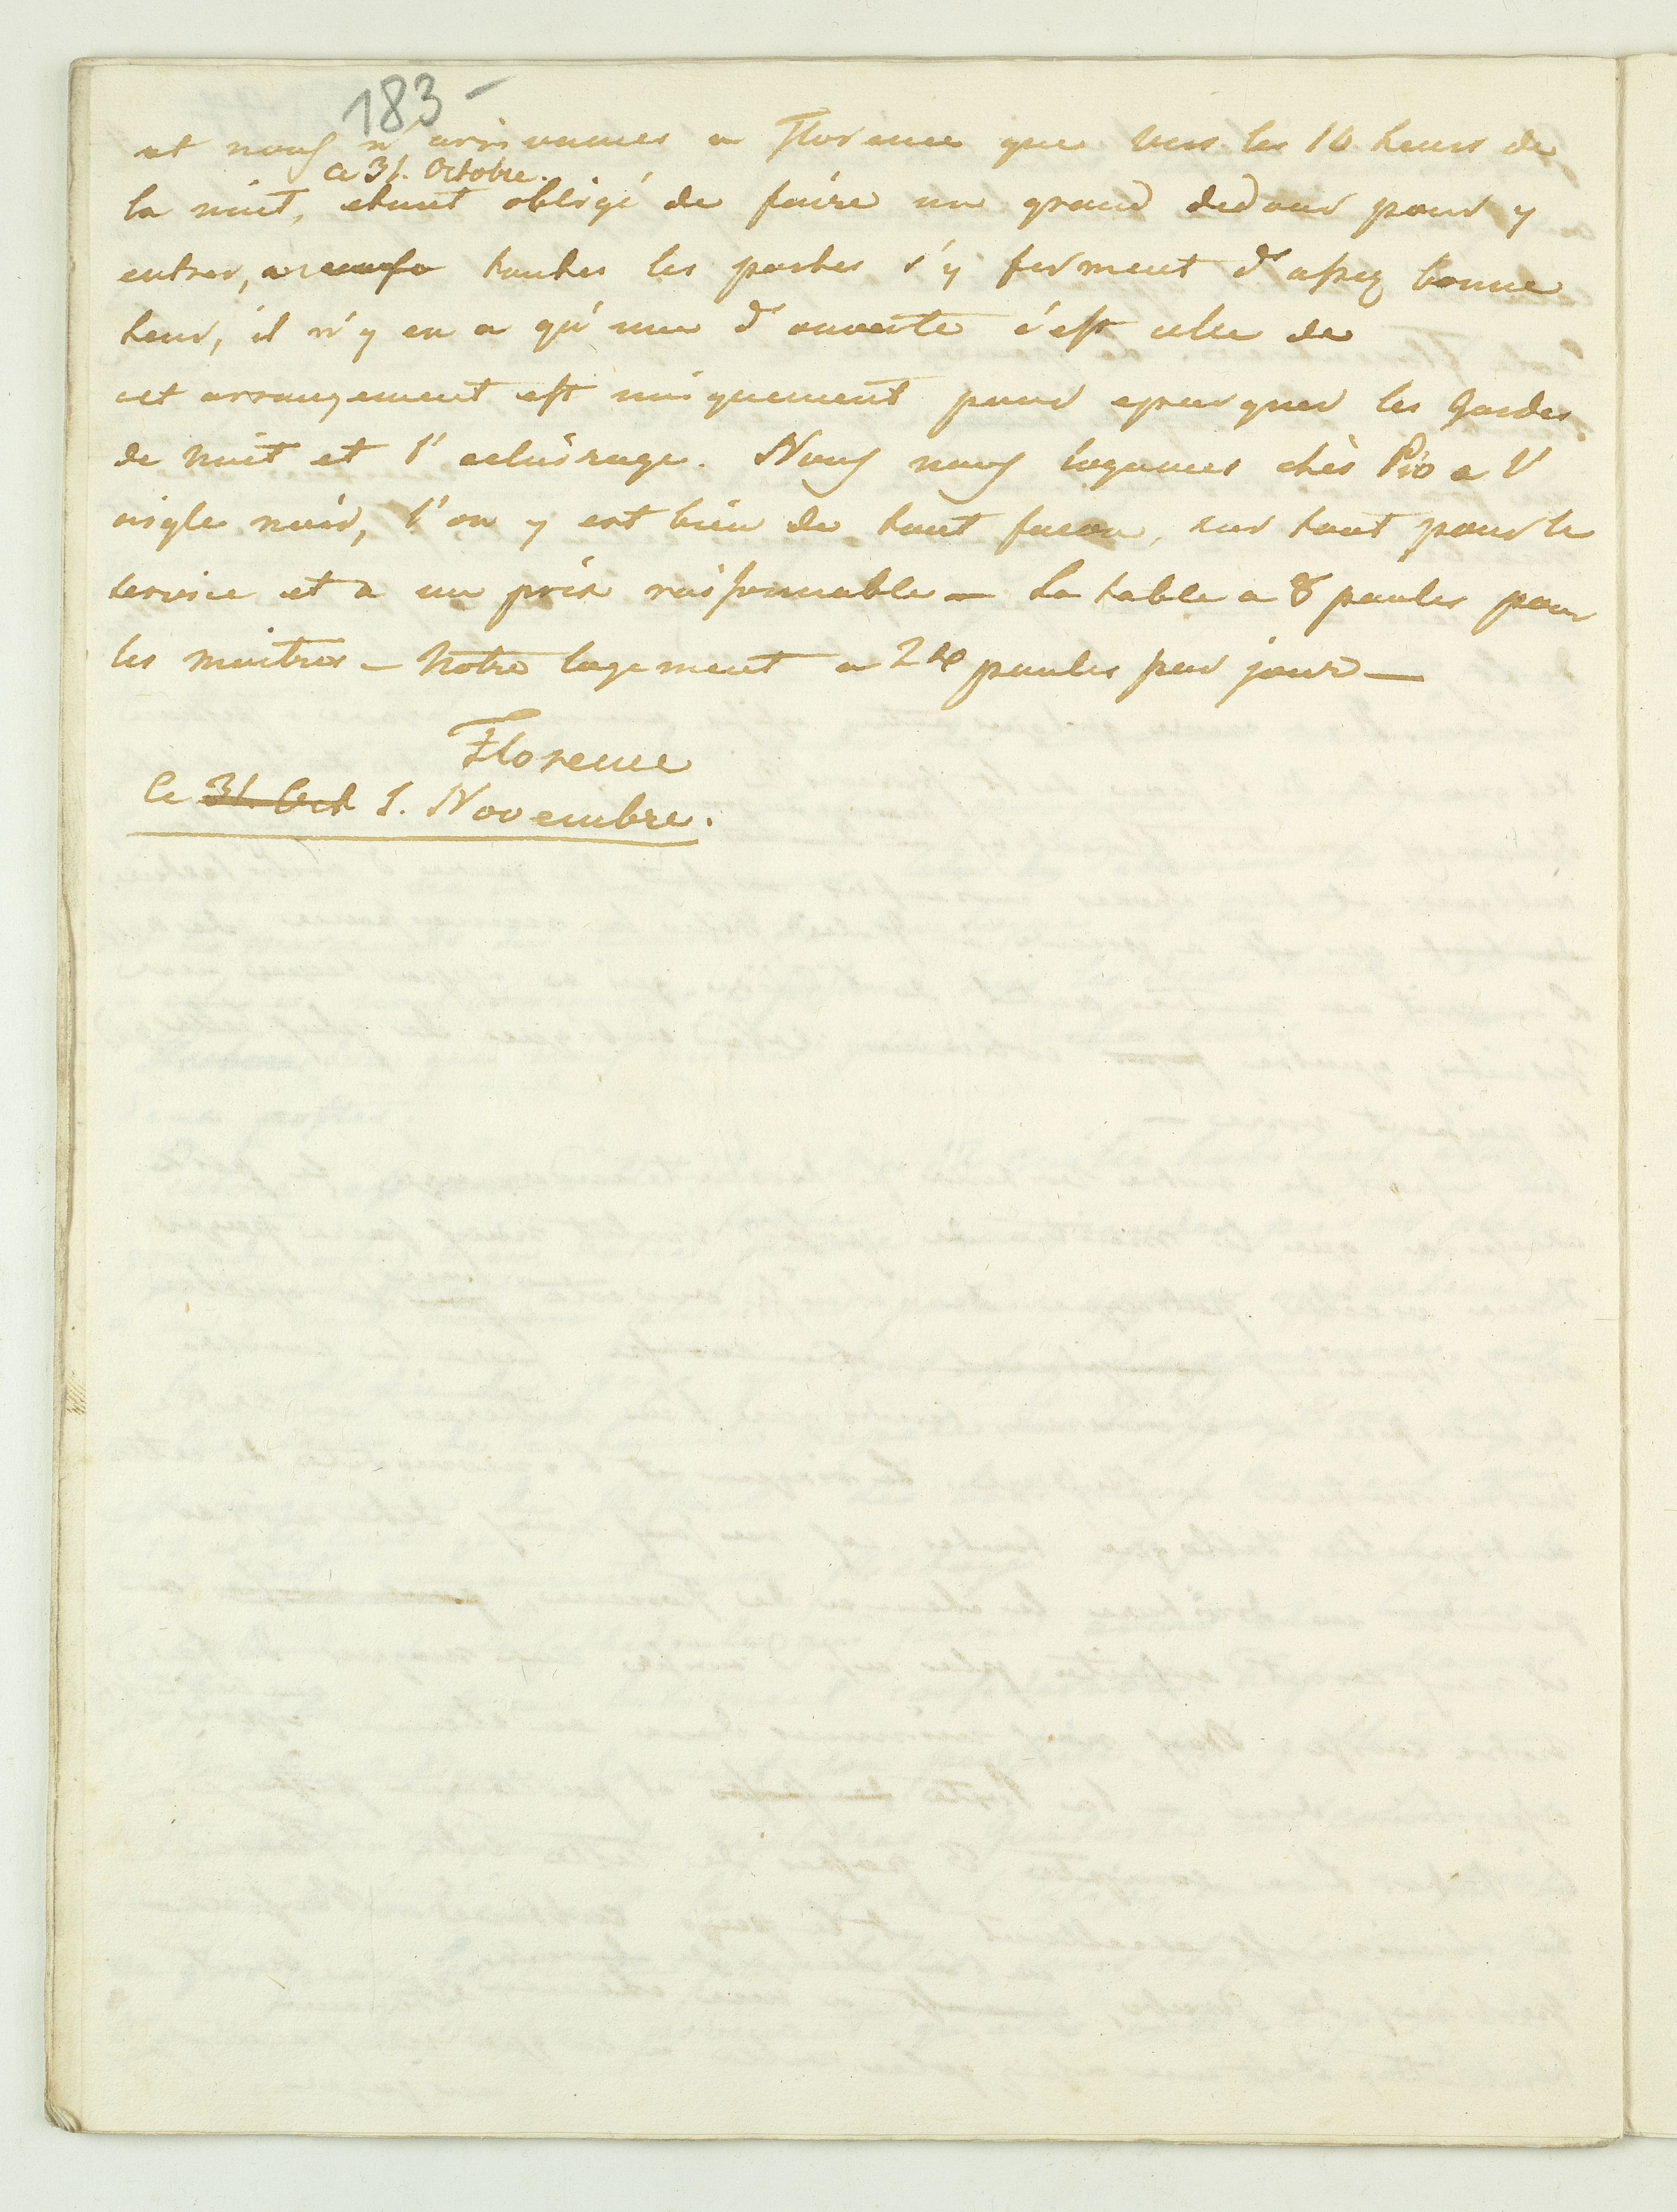 183 -
et nous n'arrivames a Florence que vers les 10 heurs de
ce 31. Octobre.
la nuit, etant obligé de faire un grand dedour pour y
entrer, toutes les portes s'y ferment d'assez bonne
heur, il n'y en a qu'une d'ouverte c'est celle de
cet arrangement est uniquement pour epargner les gardes
de nuit et l'eclairage. Nous nous logames chès Pio a l'
aigle noir, l'on y est bien de tout facon, sur tout pour le
service et a un prix raisonnable — La table a 8 paules pour
les maitres — Notre logement a 24 paules par jour —
Florence
Ce 31. Oct 1. Novembre.